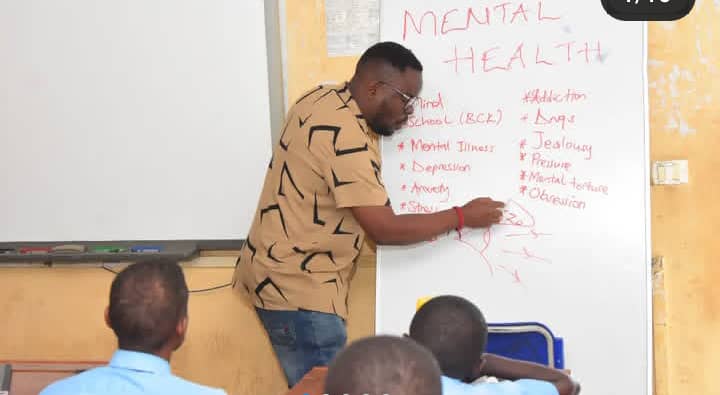 MENTAL
HEALTH
Mind
School (BCK)
* Mental Illness
* Depression
* Anxiety
* Stress
* Addiction
* Drugs
* Jealousy
* Pressure
* Mental torture
* Obsession